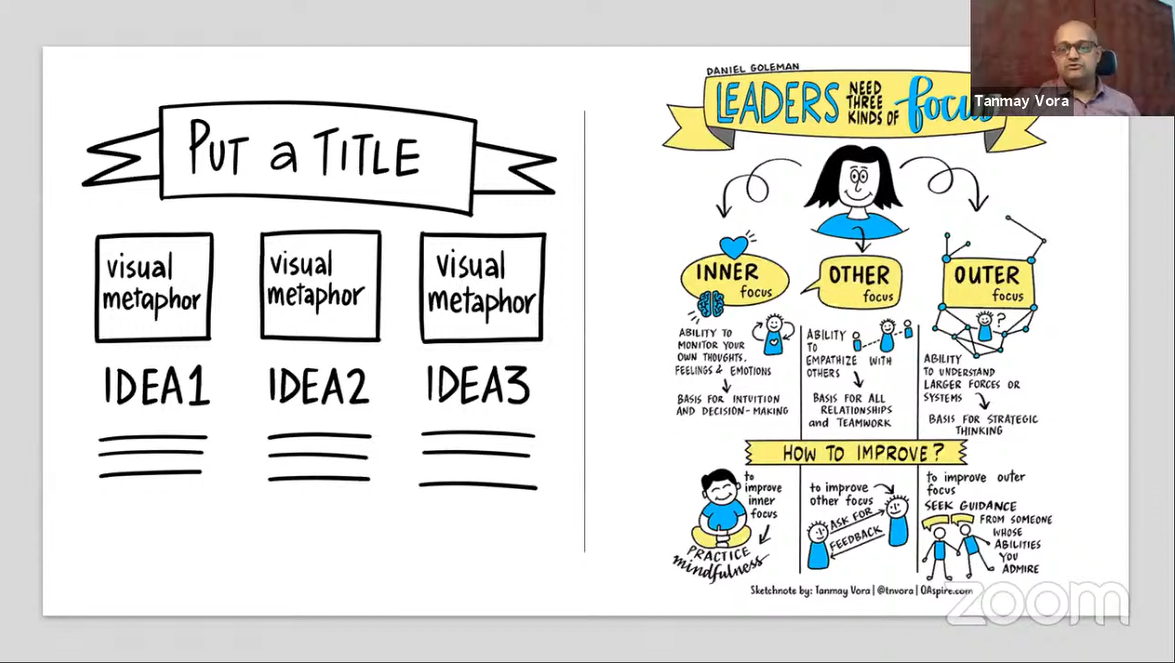 PUT a TITLE
visual
metaphor
IDEA1
visual
metaphor
IDEA2
visual
metaphor
IDEA3
DANIEL GOLEMAN
LEADERS NEED THREE KINDS OF focus
Tanmay Vora
INNER
focus
ABILITY TO
MONITOR YOUR
OWN THOUGHTS,
FEELINGS & EMOTIONS
BASIS FOR INTUITION
AND DECISION-MAKING
OTHER
focus
ABILITY
TO
EMPATHIZE WITH
OTHERS
BASIS FOR ALL
RELATIONSHIPS
and TEAMWORK
OUTER
focus
?
ABILITY
TO UNDERSTAND
LARGER FORCES OR
SYSTEMS
BASIS FOR STRATEGIC
THINKING
HOW TO IMPROVE?
to
improve
inner
focus
PRACTICE
mindfulness
to improve
other focus
ASK FOR
FEEDBACK
to improve outer
focus
SEEK GUIDANCE
FROM SOMEONE
WHOSE
ABILITIES
YOU
ADMIRE
Sketchnote by: Tanmay Vora | @tnvora | QAspire.com
zoom